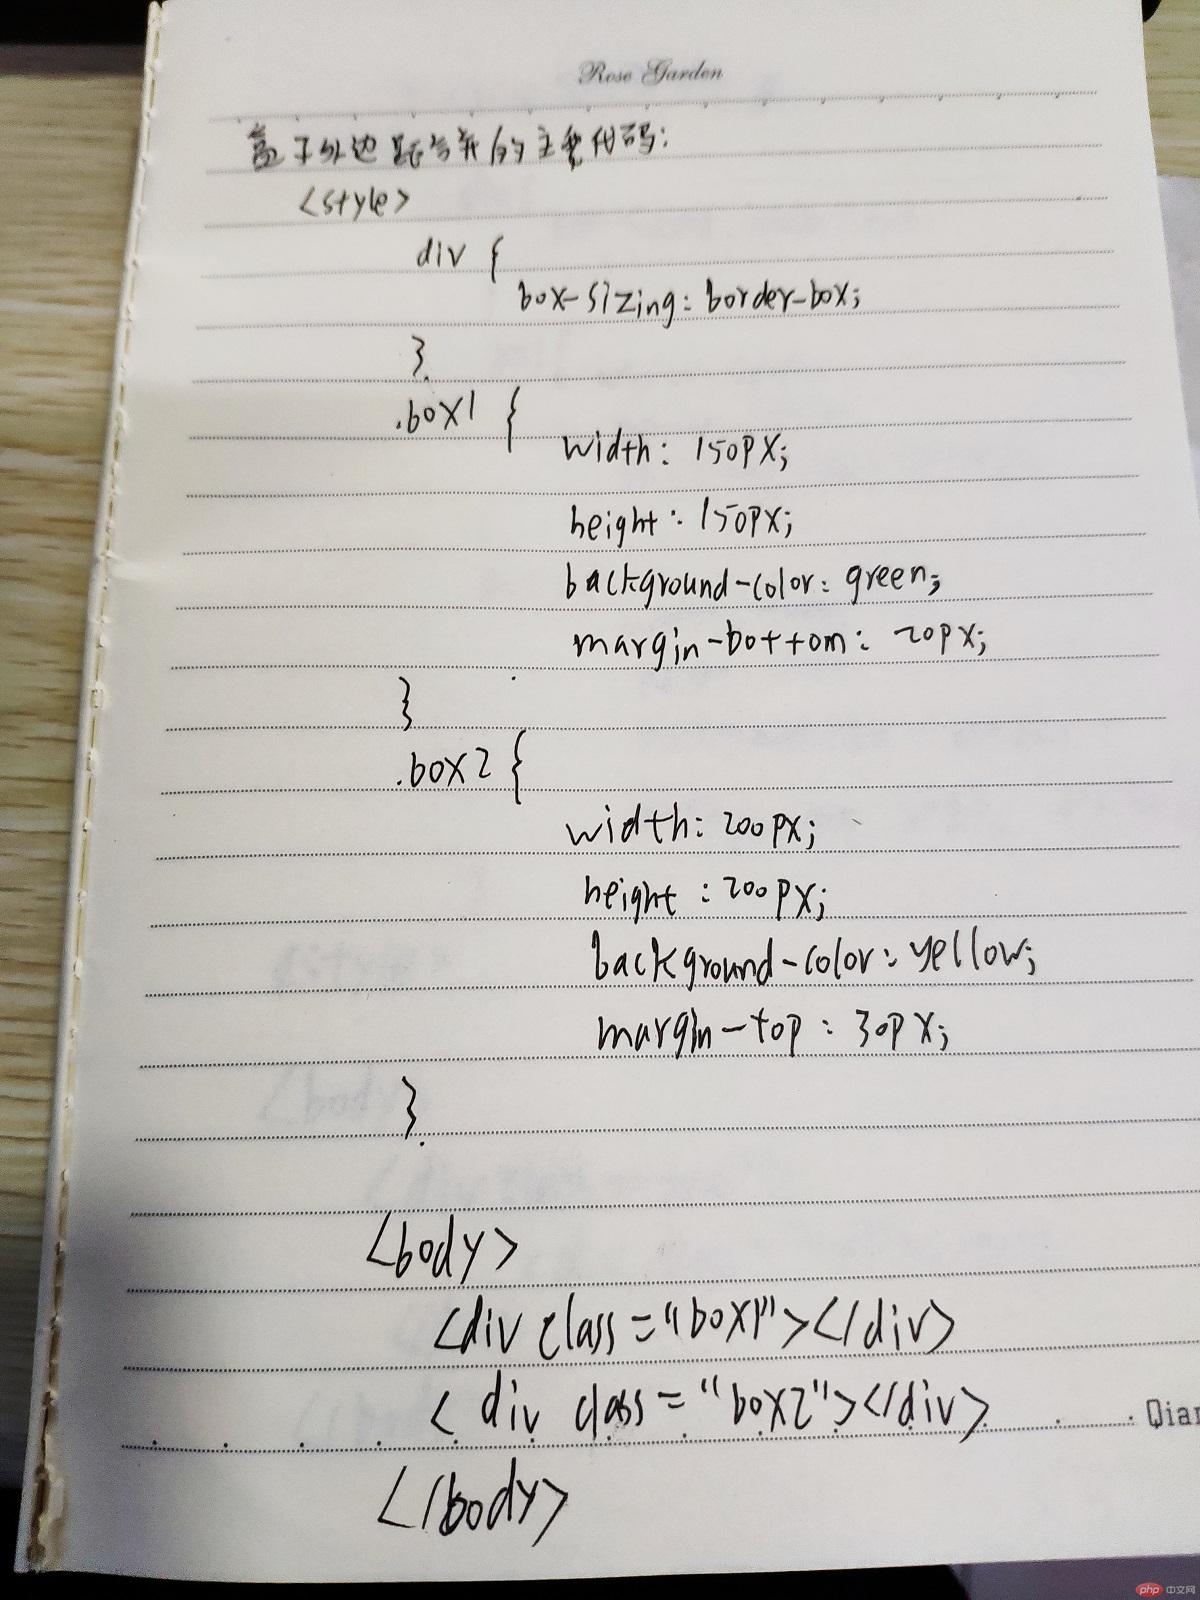 Rose Garden
盒子外边距合并的主要代码:
<style>
div {
box-sizing: border-box;
}
.box1 {
width: 150px;
height: 150px;
background-color: green;
margin-bottom: 20px;
}
.box2 {
width: 200px;
height: 200px;
background-color: yellow;
margin-top: 30px;
}
<body>
<div class="box1"></div>
<div class="box2"></div>
Qian
</body>
php 中文网